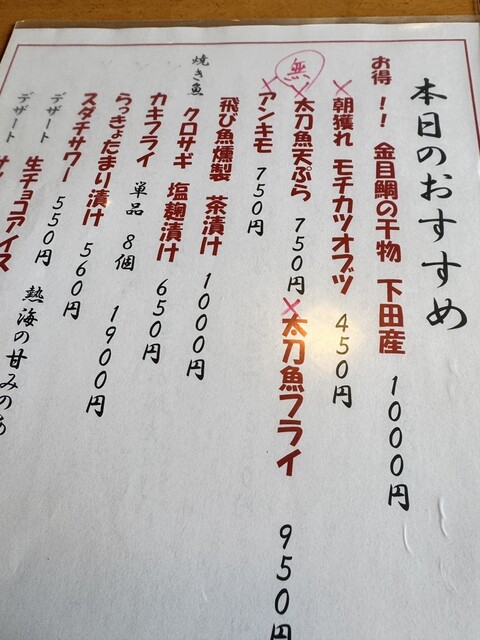 本日のおすすめ
お得!! 金目鯛の干物 下田産 1000円
×朝獲れ モチカツオブツ 450円
無
×太刀魚天ぷら 750円 ×太刀魚フライ 950円
×アンキモ 750円
飛び魚燻製 茶漬け 1000円
焼き魚 クロサギ 塩麹漬け 650円
カキフライ 単品 8個 1900円
らっきょたまり漬け 560円
スダチサワー 550円
デザート 生チョコアイス 熱海の甘みのあ
デザート